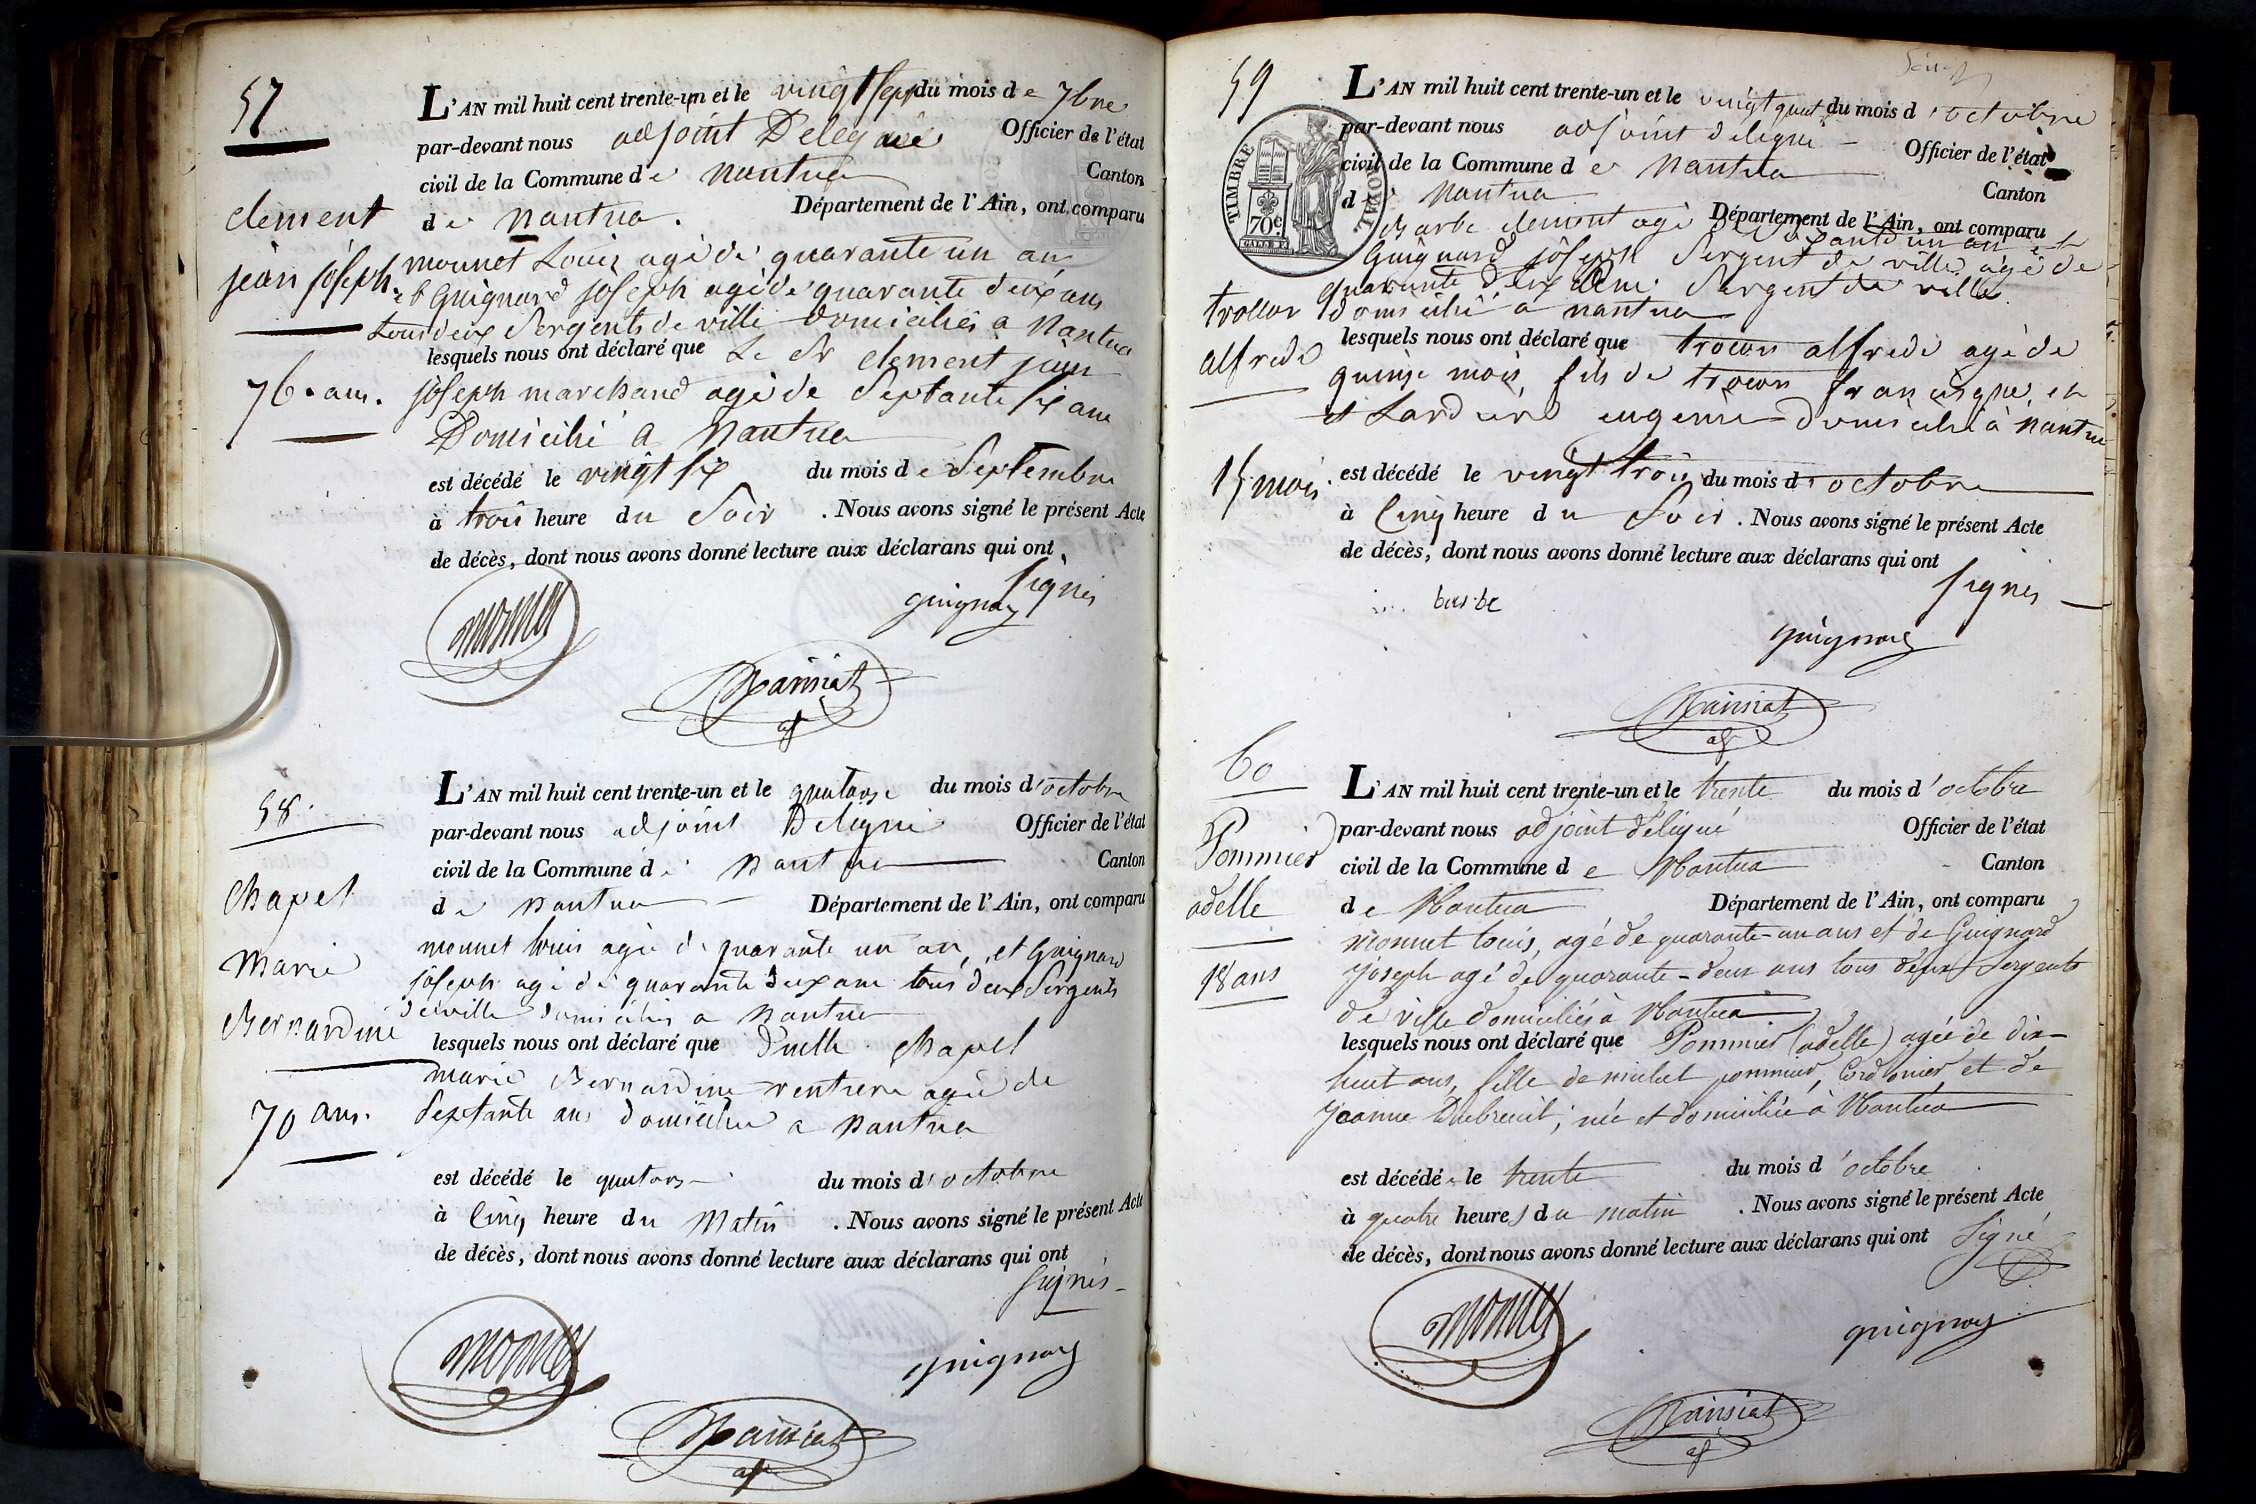 57
L'AN mil huit cent trente-un et le vingt sept du mois de 7bre
par-devant nous adjoint Délégué Officier de l'état
civil de la Commune de Nantua Canton
de Nantua. Département de l'Ain, ont comparu
monnet Louis agé de quarante un an
et Guignard joseph agé de quarante deux ans
tous deux Sergents de ville domiciliés a Nantua
lesquels nous ont déclaré que Le Sr clement jean
joseph marchand agé de Septante six ans
Domicilié a Nantua
est décédé le vingt six du mois de Septembre
à trois heure du Soir . Nous avons signé le présent Acte
de décès, dont nous avons donné lecture aux déclarans qui ont
signés
clement
jean joseph
76. ans.
monnet
guignard
58.
L'AN mil huit cent trente-un et le quatorze du mois d'octobre
par-devant nous adjoint Délegué Officier de l'état
civil de la Commune de Nantua Canton
de Nantua Département de l'Ain, ont comparu
monnet louis agé de quarante un an, et Guignard
joseph agé de quarante deux ans tous deux Sergents
de ville domiciliés a Nantua
lesquels nous ont déclaré que Dlle chapel
marie Bernardine rentiere agée de
Septante ans domiciliée a Nantua
est décédé le quatorze du mois d'octobre
à Cinq heure du Matin . Nous avons signé le présent Acte
de décès, dont nous avons donné lecture aux déclarans qui ont
signés
chapel
Marie
Bernardine
70 ans.
monnet
guignard
59
L'AN mil huit cent trente-un et le vingt quat du mois d'octobre
par-devant nous adjoint delegué Officier de l'état
civil de la Commune de Nantua Canton
d Nantua Département de l'Ain, ont comparu
Barbe clement agé de un an et
Guignard joseph Sergent de ville agé de
quarante deux Sergent de ville
domicilié a nantua
lesquels nous ont déclaré que trocon alfrede agé de
quinze mois, fils de trocon francisque, et
et eugenie domicilié à Nantua
est décédé le vingt trois du mois d'octobre
à Cinq heure du Soir . Nous avons signé le présent Acte
de décès, dont nous avons donné lecture aux déclarans qui ont
signés
alfrede
15 mois.
TIMBRE ROYAL
70c
barbe
guignard
60
L'AN mil huit cent trente-un et le trente du mois d'octobre
par-devant nous adjoint délégué Officier de l'état
civil de la Commune de Nantua Canton
de Nantua Département de l'Ain, ont comparu
Monnet louis, agé de quarante-un ans et de Guignard
Joseph agé de quarante-deux ans tous deux Sergents
de ville domiciliés à Nantua
lesquels nous ont déclaré que Pommier (adelle) agée de dix-
huit ans, fille de michel pommier, Cordonier, et de
Jeanne Dubreuil; née et domiciliée à Nantua
est décédée le trente du mois d'octobre
à quatre heures du matin . Nous avons signé le présent Acte
de décès, dont nous avons donné lecture aux déclarans qui ont Signé
Pommier
adelle
18 ans
monnet
guignard